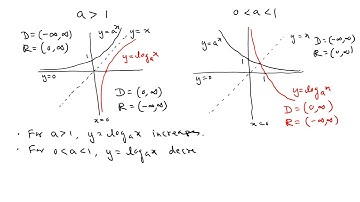 a > 1
0 < a < 1
D = (-∞,∞)
R = (0,∞)
y = aˣ
y = x
y = logₐx
y = 0
x = 0
D = (0,∞)
R = (-∞,∞)
1
y = aˣ
y = x
D = (-∞,∞)
R = (0,∞)
1
y = 0
1
y = logₐx
D = (0,∞)
R = (-∞,∞)
x = 0
• For a > 1, y = logₐx increases.
• For 0 < a < 1, y = logₐx decre